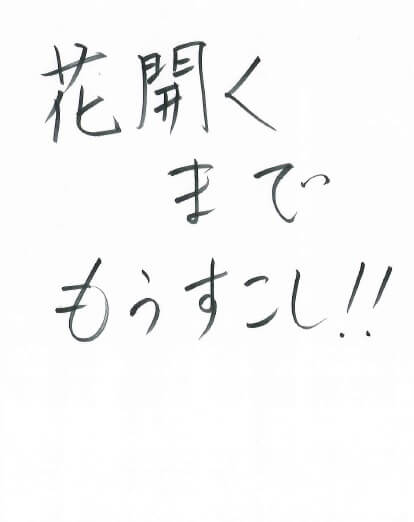 花開く
まで
もうすこし!!